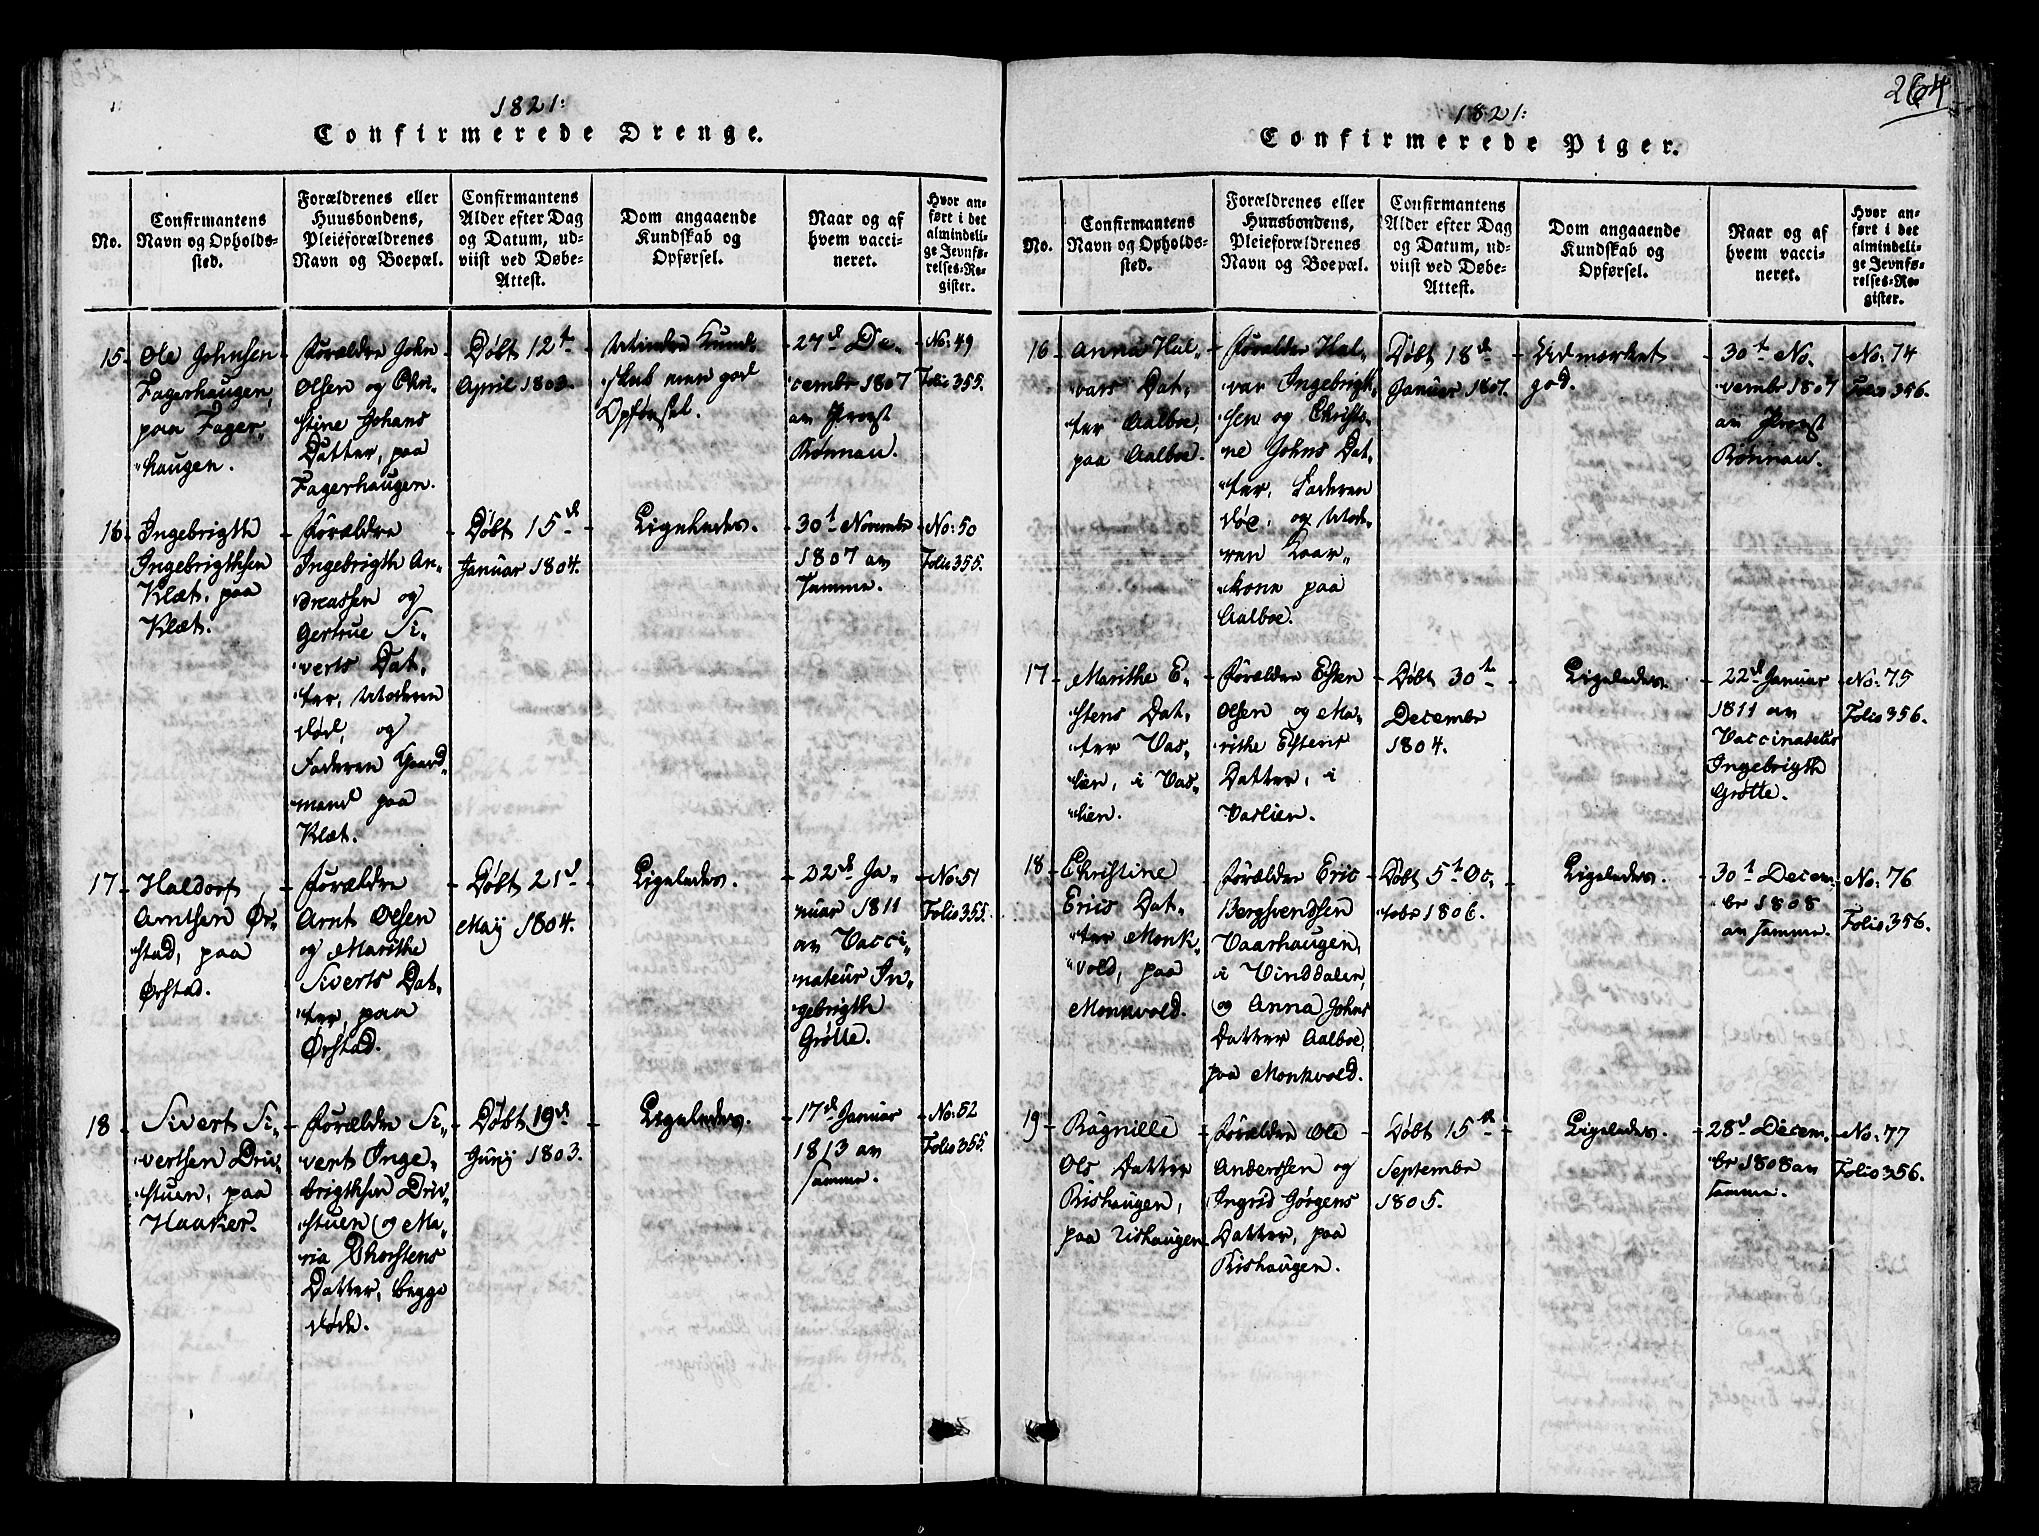 1821:
Confirmerede Drenge.
No.
Confirmantens
Navn og Opholds-
sted.
Forældrenes eller
Huusbondens,
Pleieforældrenes
Navn og Boepæl.
Confirmantens
Alder efter Dag
og Datum, ud-
viist ved Døbe-
Attest.
Dom angaaende
Kundskab og
Opførsel.
Naar og af
hvem vacci-
neret.
Hvor an-
ført i det
almindeli-
ge Jevnfø-
relses-Re-
gister.
15
Ole Johnsen
Fagerhaugen,
paa Fager-
haugen.
Forældre John
Olsen og Chri-
stine Johans
Datter, paa
Fagerhaugen.
Døbt 12t
April 1803.
Mindre Kund-
skab men god
Opførsel.
27d De-
cembr 1807
av Provst
Rønnau.
No: 49
Folio 355.
16
Ingebrigth
Ingebrigthsen
Klæt, paa
Klæt.
Forældre
Ingebrigth An-
dreassen og
Gertrue Si-
verts Dat-
ter, Moderen
død, og
Faderen Gaard-
mand paa
Klæt.
Døbt 15d
Januar 1804.
Ligeledes.
30t Novembr
1807 av
Samme.
No: 50
Folio 355.
17
Haldorf
Arntsen Ør-
stad, paa
Ørstad.
Forældre
Arnt Olsen
og Marithe
Siverts Dat-
ter, paa
Ørstad.
Døbt 21d
Maij 1804.
Ligeledes.
22d Ja-
nuar 1811
av Vacci-
nateur In-
gebrigth
Grøtte.
No: 51
Folio 355.
18
Sivert Si-
vertsen Driv-
stuen, paa
Haaker.
Forældre Si-
vert Inge-
brigthsen Driv-
stuen og Ma-
ria Thorstens
Datter, begge
døde.
Døbt 19d
Junij 1803.
Ligeledes.
17d Januar
1813 av
Samme.
No: 52
Folio 355.
264
1821:
Confirmerede Piger.
No.
Confirmantens
Navn og Opholds-
sted.
Forældrenes eller
Huusbondens,
Pleieforældrenes
Navn og Boepæl.
Confirmantens
Alder efter Dag
og Datum, ud-
viist ved Døbe-
Attest.
Dom angaaende
Kundskab og
Opførsel.
Naar og af
hvem vacci-
neret.
Hvor an-
ført i det
almindeli-
ge Jevnfø-
relses-Re-
gister.
16
Anna Hal-
vars Dat-
ter Aalboe,
paa Aalboe.
Forældre Hal-
var Ingebrigth-
sen og Christi-
ne Johns Dat-
ter, Faderen
død, og Mode-
ren Kaar-
kone paa
Aalboe.
Døbt 18d
Januar 1807.
Udmærket
god.
30t No-
vembr 1807
av Provst
Rønnau.
No: 74
Folio 356.
17
Marithe E-
stens Dat-
ter Vas-
lien, i Vas-
lien.
Forældre Esten
Olsen og Ma-
rithe Estens
Datter, i
Vaslien.
Døbt 30te
Decembr
1804.
Ligeledes.
22d Januar
1811 av
Ingebrigth
Grøtte.
No: 75
Folio 356.
18
Christine
Erics Dat-
ter Monk-
vold, paa
Monkvold.
Forældre Eric
Bergsvendsen
Vaarhaugen,
i Vinddalen,
og Anna Johns
Datter Aalboe,
paa Monkvold.
Døbt 5t Oc-
tobr 1806.
Ligeledes.
30t Decem-
br 1808
av Samme.
No: 76
Folio 356.
19
Ragnille
Ols Datter
Rishaugen,
paa Rishaugen
Forældre Ole
Anderssen og
Ingrid Jørgens
Datter, paa
Rishaugen.
Døbt 15de
Septembr
1805.
Ligeledes.
28d Decem-
br 1808 av
Samme.
No: 77
Folio 356.